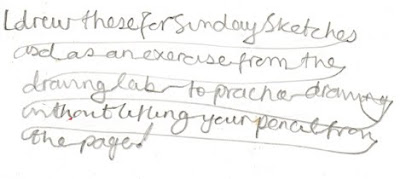 I drew these for Sunday Sketches
and as an exercise from the
drawing lab - to practice drawing
without lifting your pencil from
the page!